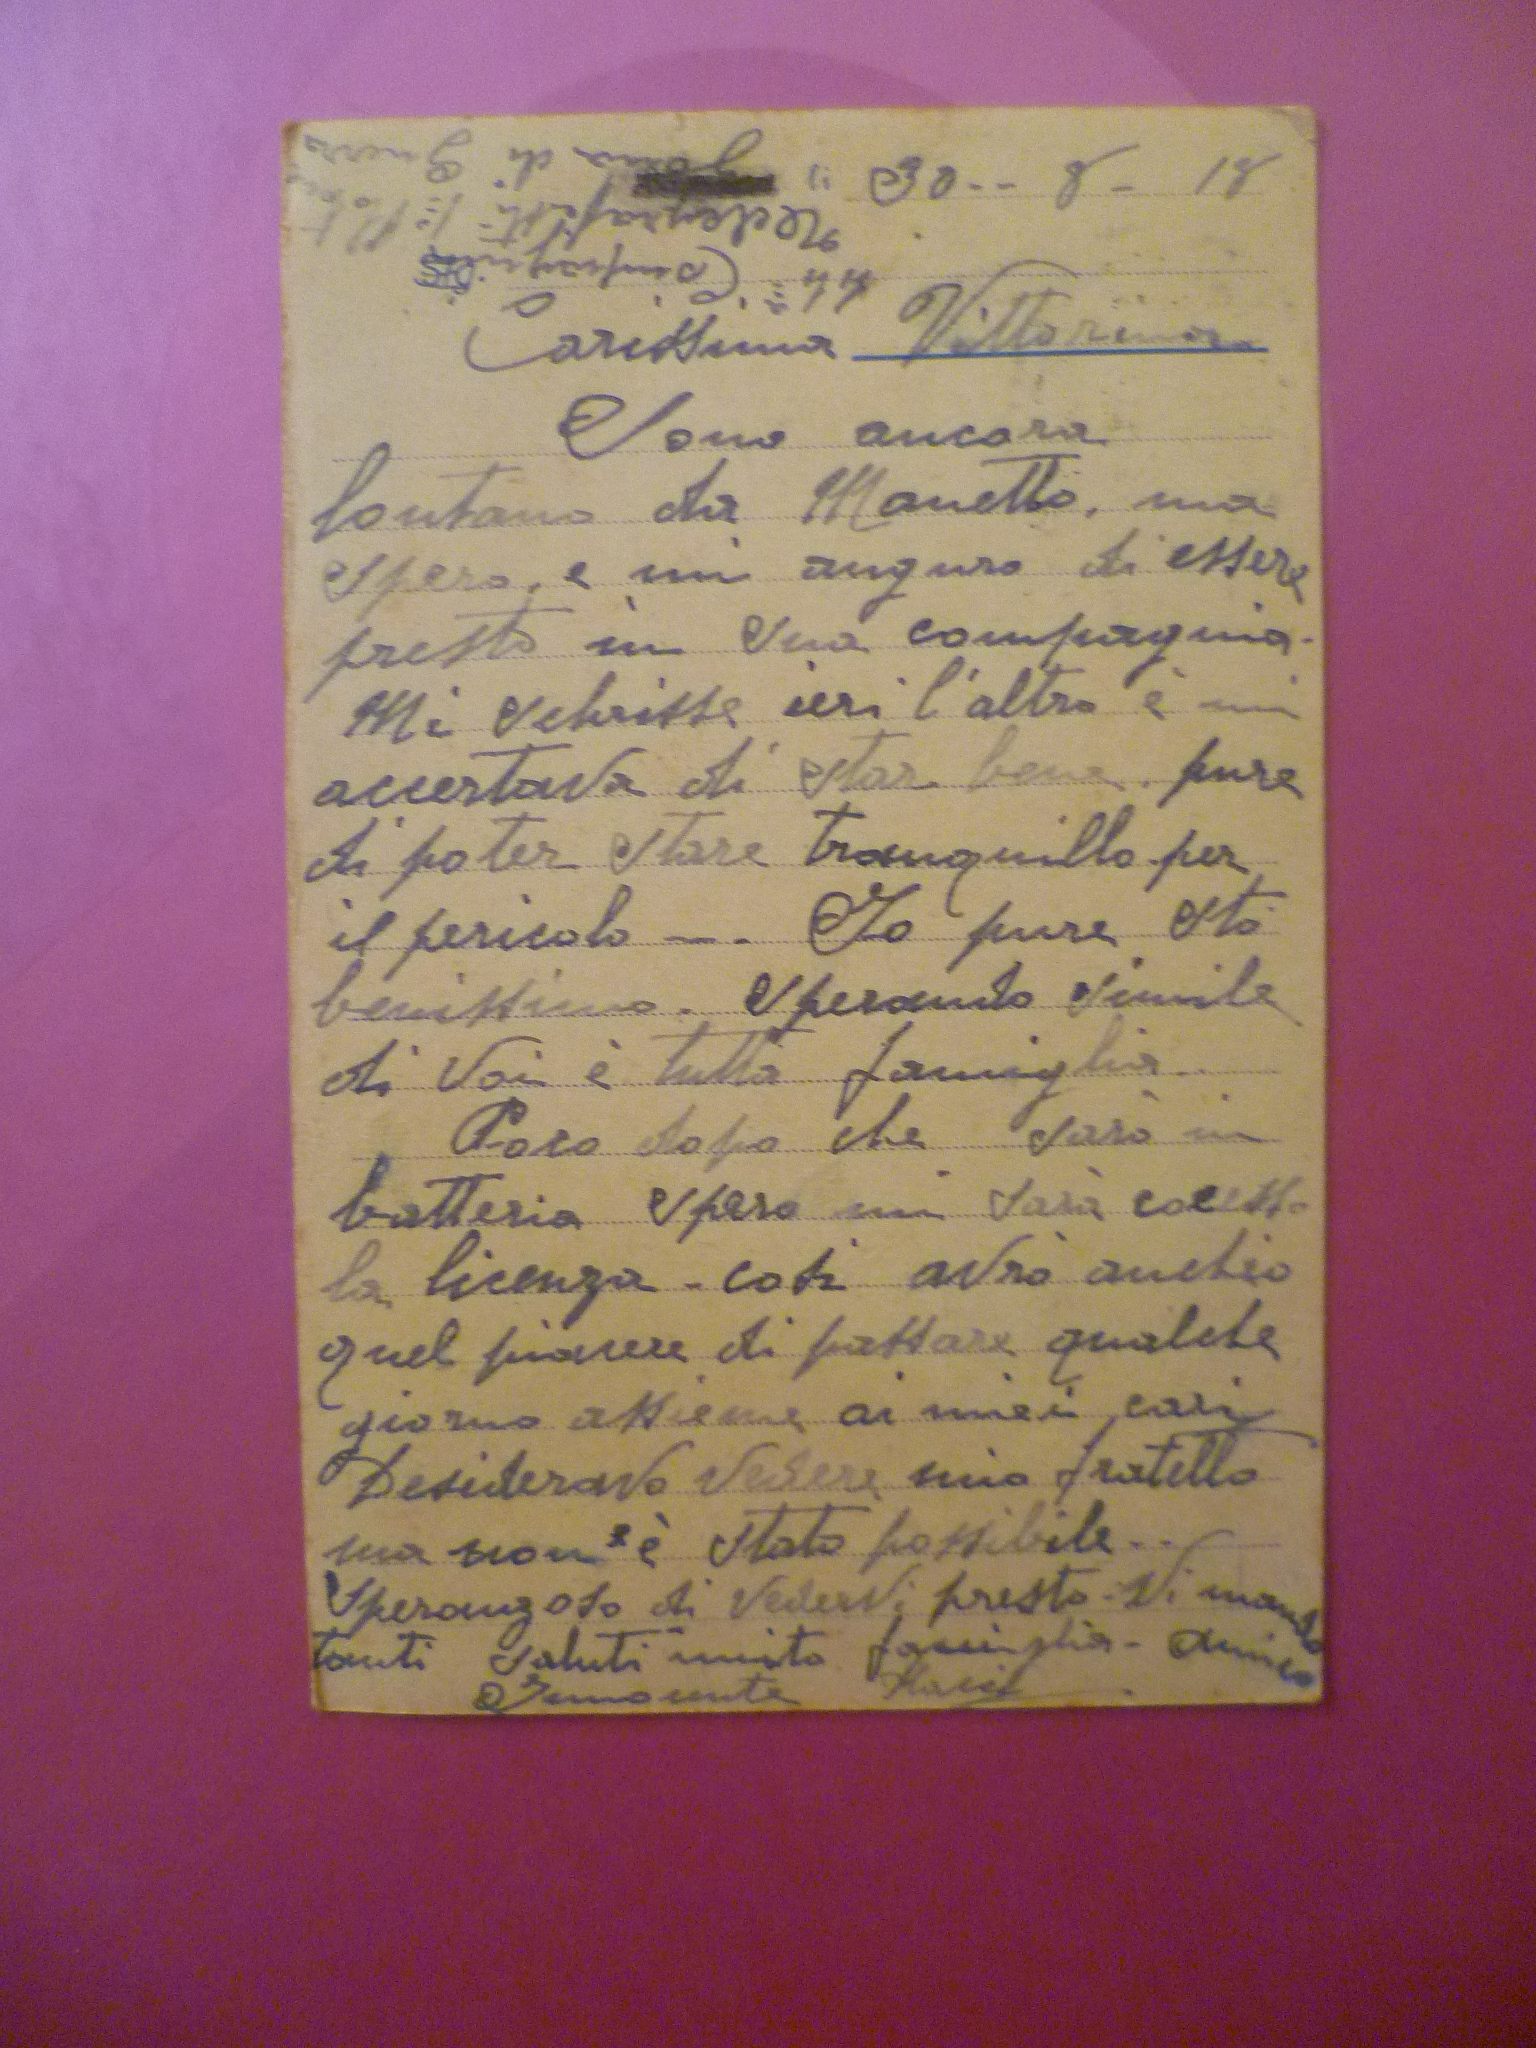 30-- 8- 18
Carissima Vittorina
Sono ancora
lontano da Manetto, ma
spero, e mi auguro di essere
presto in sua compagnia-
Mi schrisse ieri l'altro è mi
accertava di star bene. pure
di poter stare tranquillo per
il pericolo --. Io pure sto
benissimo. Sperando simile
di voi è tutta famiglia..
Poco dopo che sarò in
batteria spero mi sarà cocesso
la licenza - così avrò anchio
quel piacere di passare qualche
giorno assieme ai miei cari
Desideravo vedere mio fratello
ma non è stato possibile..
Speranzoso di vedervi presto - Vi mando
tanti saluti unito famiglia - Amico
Innocente
Zona di Guerra
44= Compagnia